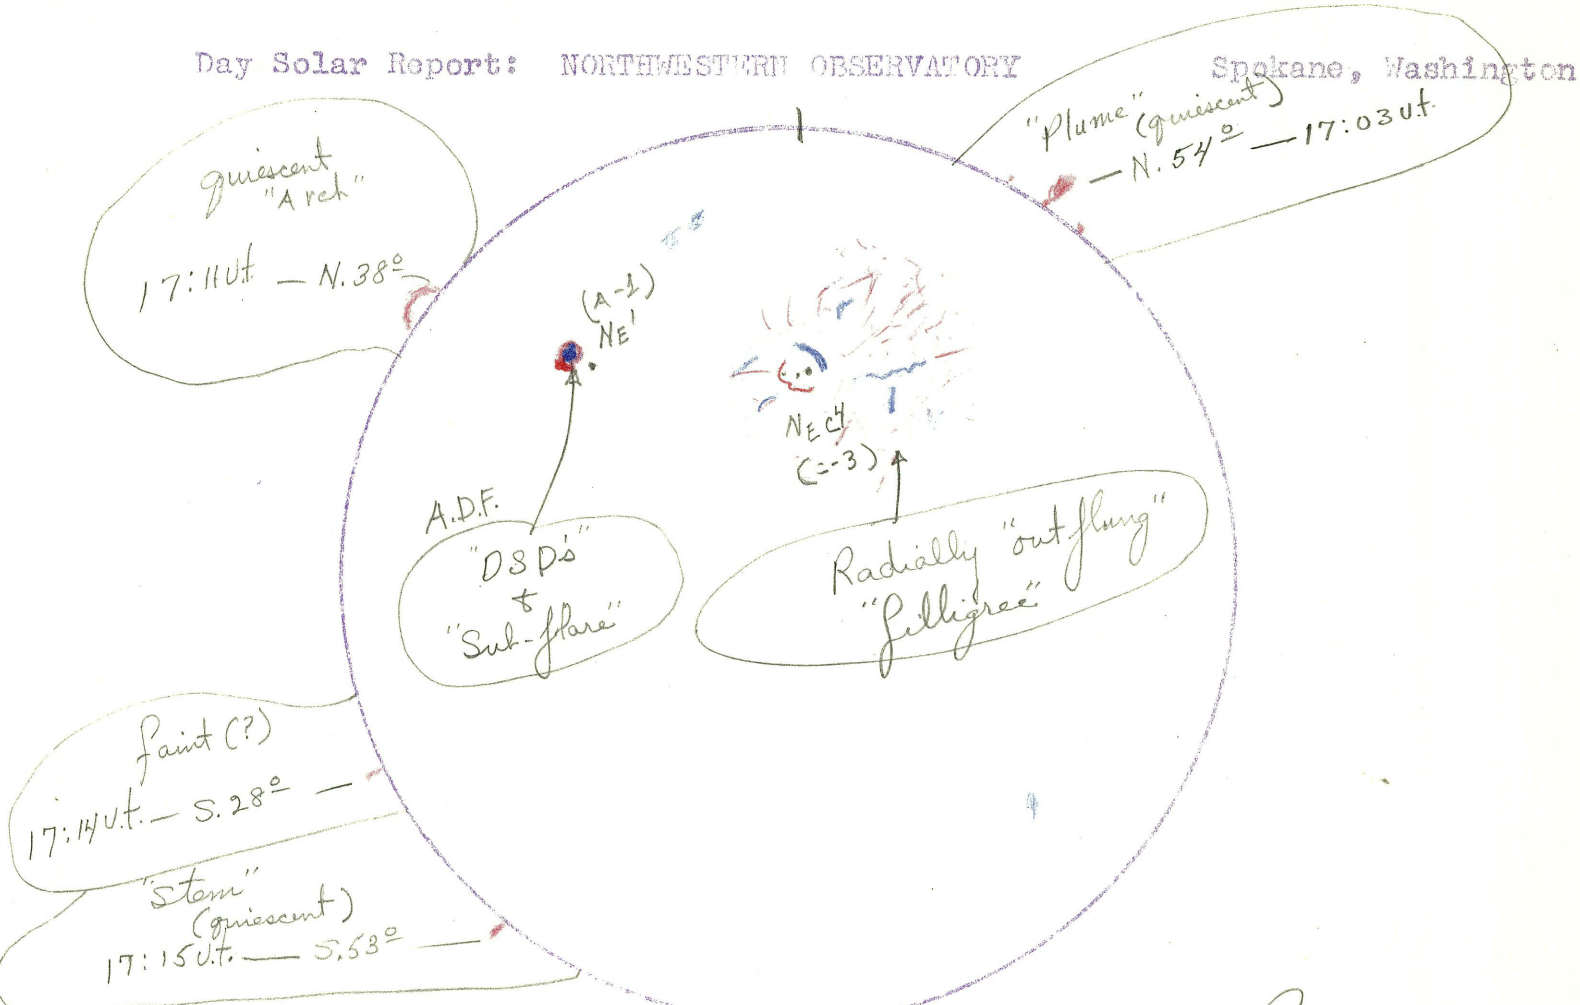 Day Solar Report: NORTHWESTERN OBSERVATORY Spokane, Washington
"Plume" (quiescent)
— N. 54° — 17:03 U.t.
quiescent
"Arch"
17:11 U.t. — N. 38°
(A-1)
NE'
NE C4
A.D.F.
"DSD's"
&
"Sub-flare"
Radially "out flung"
"filligree"
faint (?)
17:14 U.t. — S. 28° —
"Stem"
(quiescent)
17:15 U.t. — S. 53° —